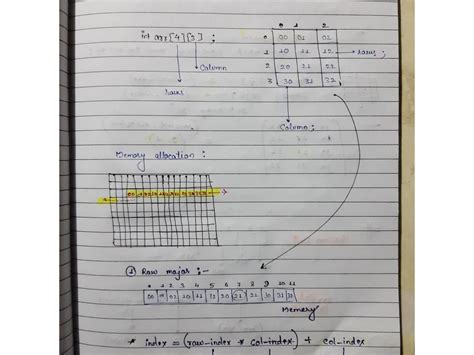 0 1 2
int arr[4][3] ;
0 00 01 02
1 10 11 12 → raws ;
2 20 21 22
3 30 31 32
Column
raws
Column ;
Memory allocation :
① Raw major :-
0 1 2 3 4 5 6 7 8 9 10 11
00 01 02 10 11 12 20 21 22 30 31 32
Memory
* index = (raw-index * col-index) + col-index